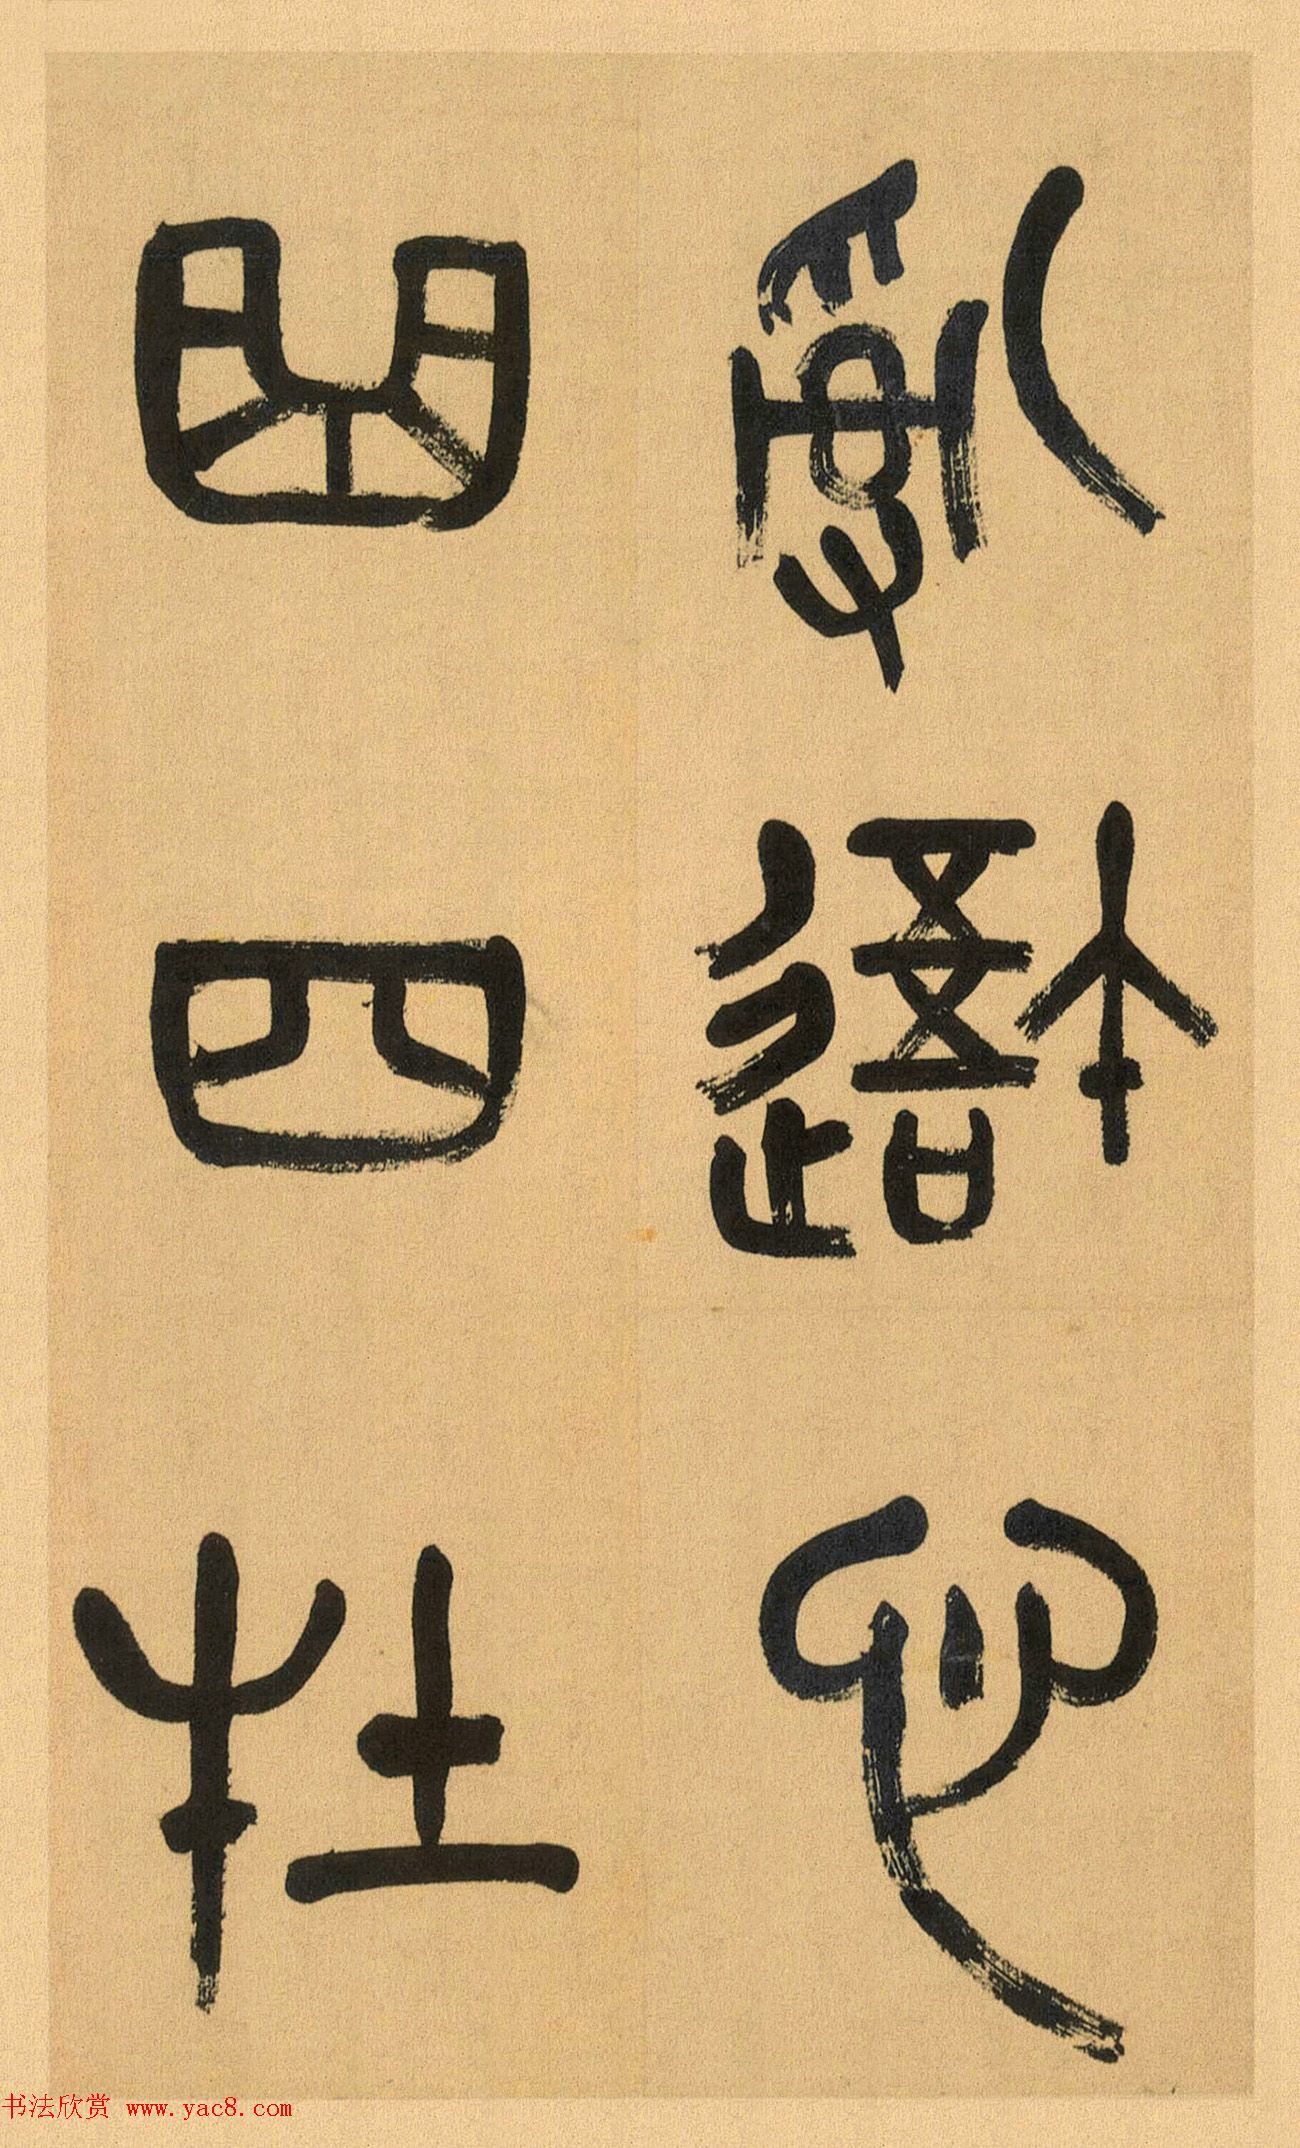 亂吾心
曲四牡
书法欣赏 www.yac8.com